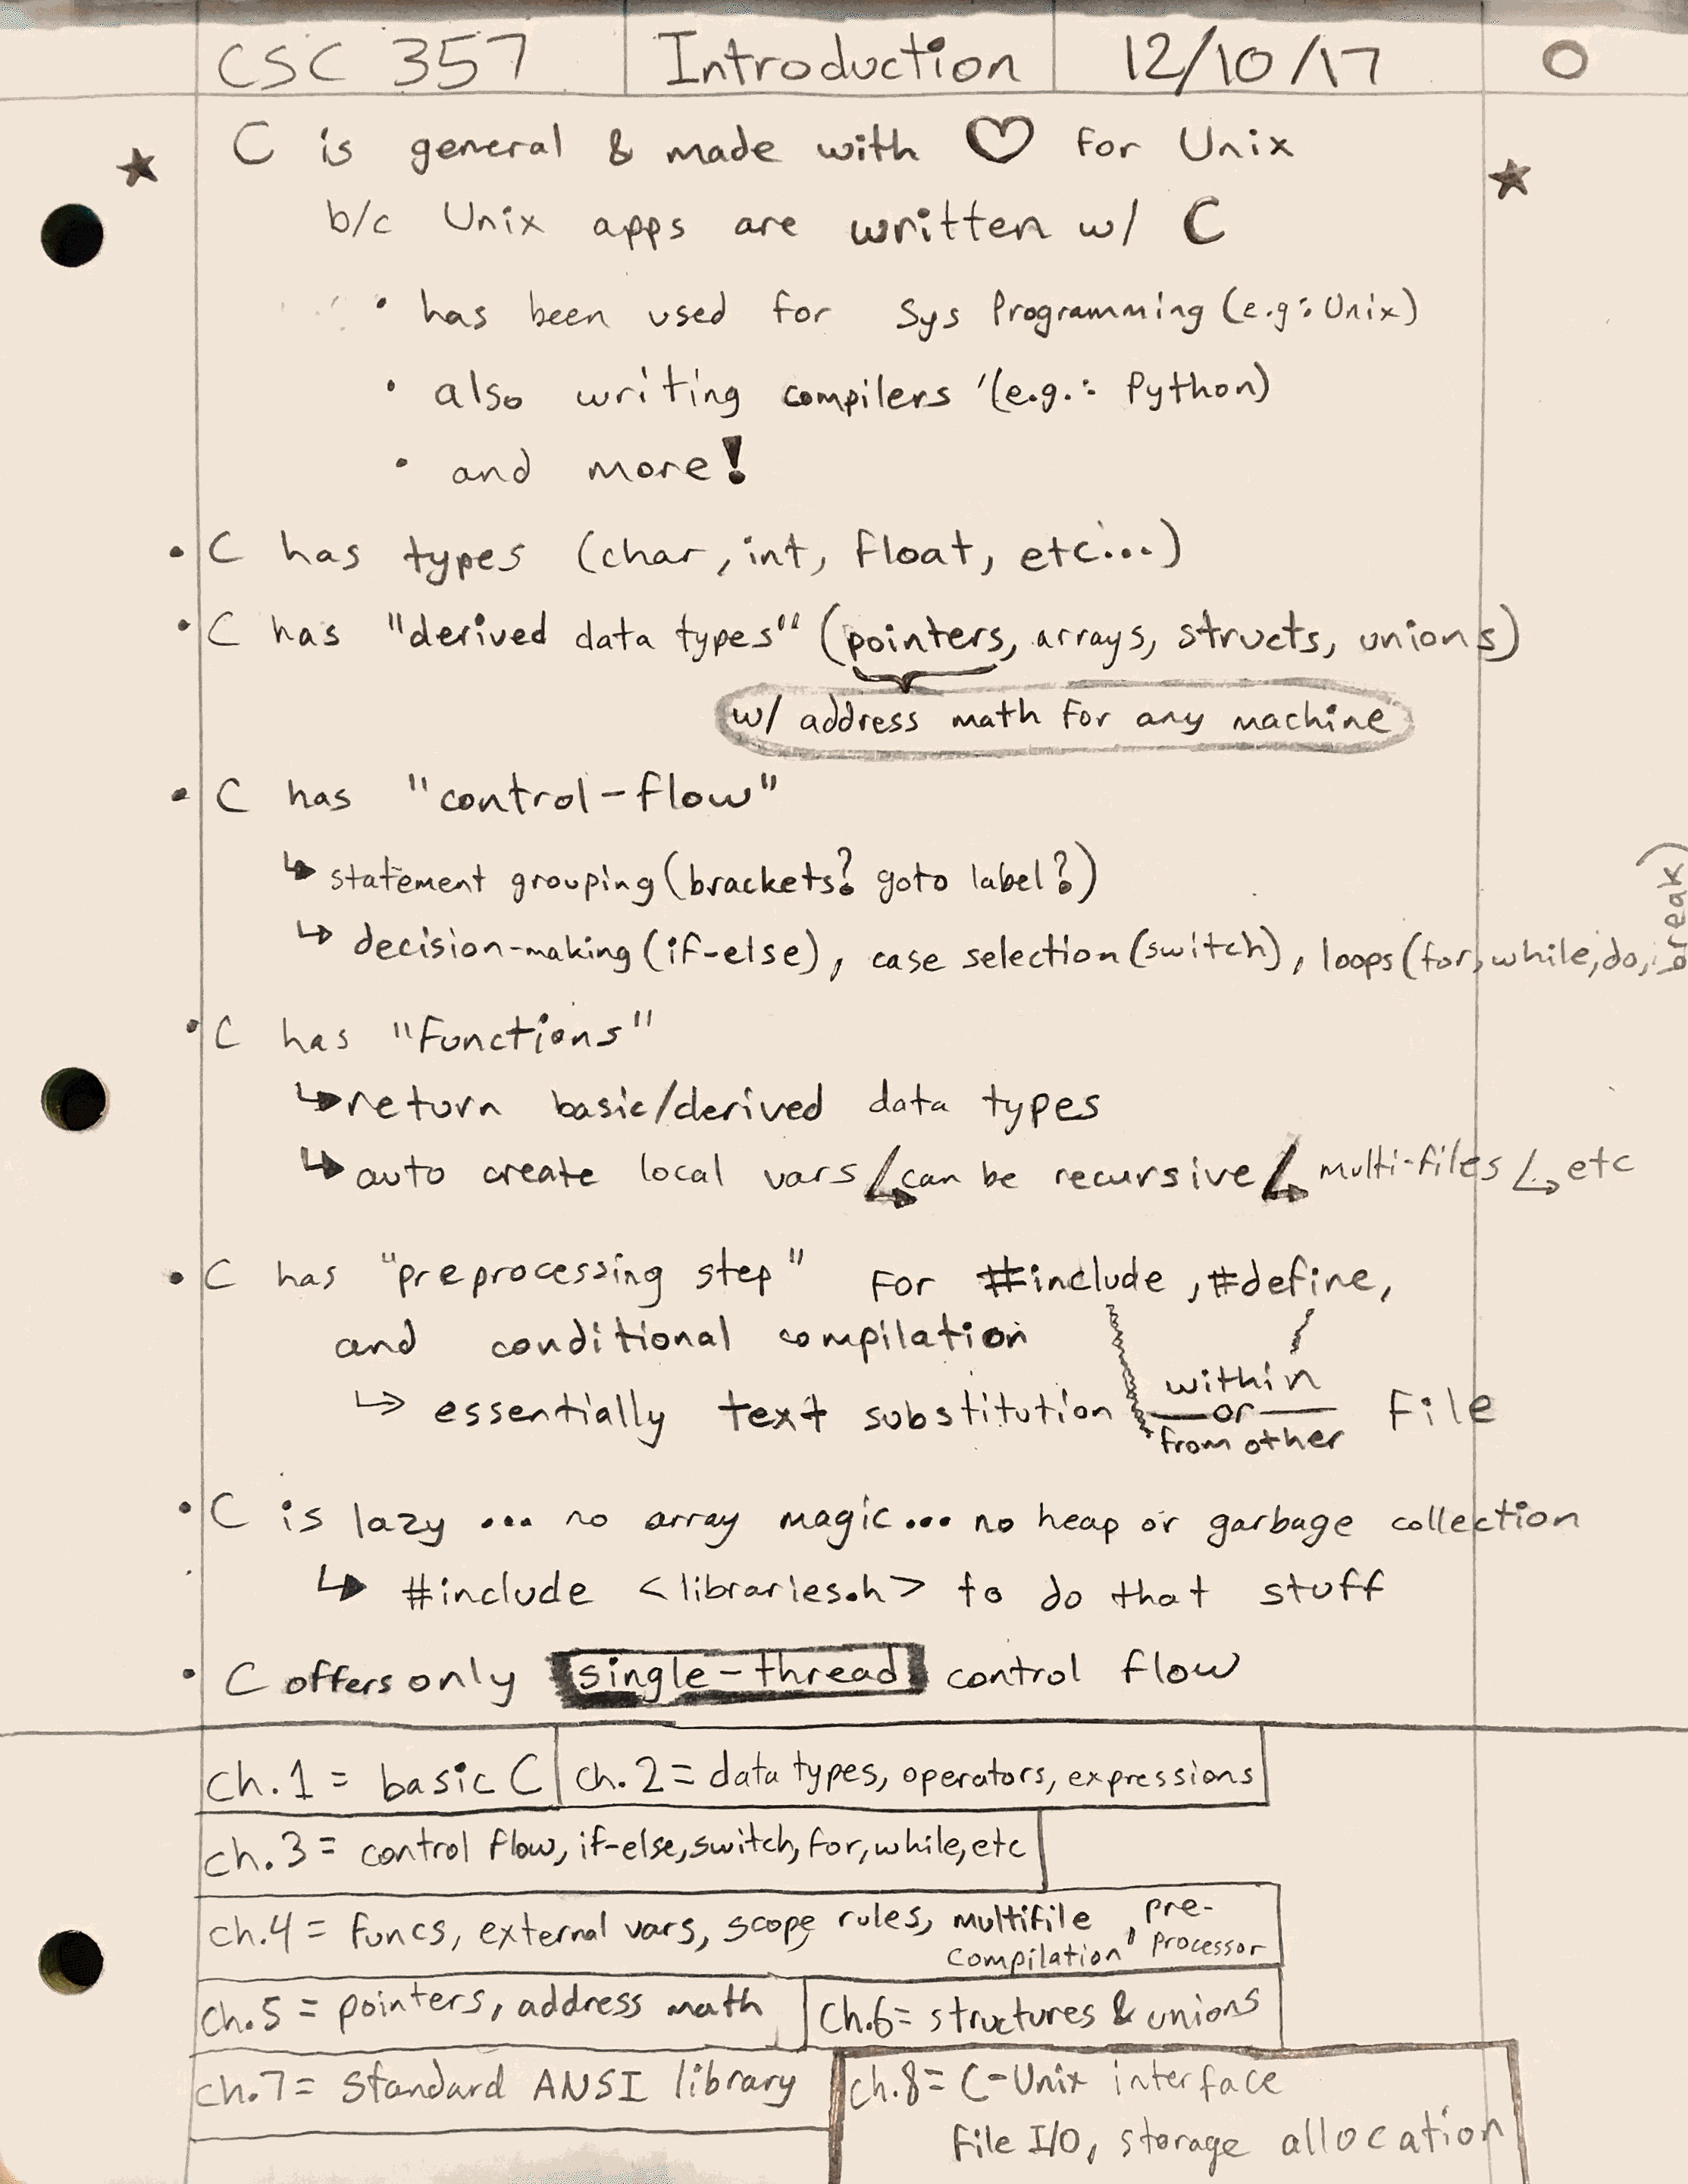 CSC 357 Introduction 12/10/17 0
★ C is general & made with ♡ for Unix ★
b/c Unix apps are written w/ C
• has been used for Sys Programming (e.g: Unix)
• also writing compilers (e.g.: Python)
• and more!
• C has types (char, int, float, etc...)
• C has "derived data types" (pointers, arrays, structs, unions)
w/ address math for any machine
• C has "control-flow"
↳ statement grouping (brackets? goto label?)
↳ decision-making (if-else), case selection (switch), loops (for, while, do, break)
• C has "functions"
↳ return basic/derived data types
↳ auto create local vars ↳ can be recursive ↳ multi-files ↳ etc
• C has "preprocessing step" for #include, #define,
and conditional compilation
↳ essentially text substitution within or from other file
• C is lazy ... no array magic... no heap or garbage collection
↳ #include <libraries.h> to do that stuff
• C offers only single-thread control flow
ch.1 = basic C ch.2 = data types, operators, expressions
ch.3 = control flow, if-else, switch, for, while, etc
ch.4 = funcs, external vars, scope rules, multifile compilation, pre-processor
ch.5 = pointers, address math ch.6= structures & unions
ch.7= standard ANSI library ch.8= C-Unix interface
file I/O, storage allocation